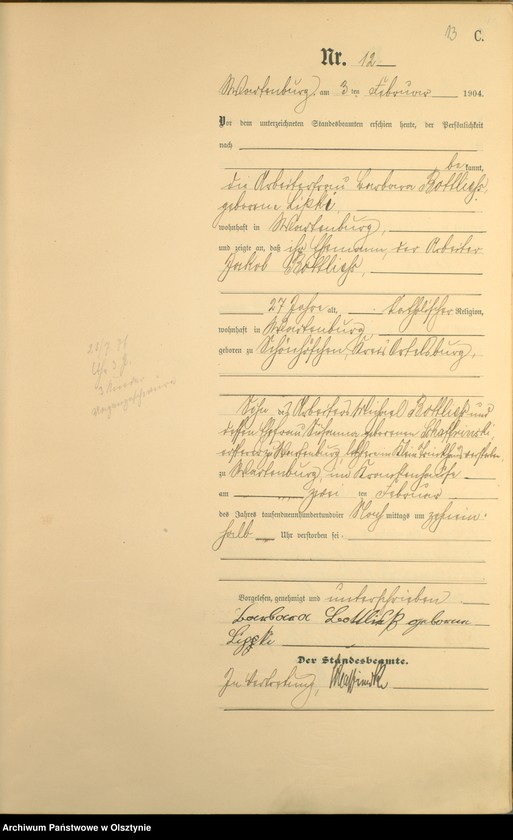 13 C.
Nr. 12
Wartenburg am 3 ten Februar 1904.
Vor dem unterzeichneten Standesbeamten erschien heute, der Persönlichkeit
nach
be kannt,
die Arbeiterfrau Barbara Bottließ,
geborene Lipki,
wohnhaft in Wartenburg,
und zeigte an, daß ihr Ehemann, der Arbeiter
Jakob Bottließ,
27 Jahre alt, katholischer Religion,
wohnhaft in Wartenburg,
geboren zu Schönhöfchen, Kreis Ortelsburg,
Sohn des Arbeiters Michael Bottließ und
dessen Ehefrau Susanna geborenen
ersterer zu Wartenburg, letztere in verstorben
zu Wartenburg, im Krankenhause
am zwei ten Februar
des Jahres tausendneunhundertundvier Nach mittags um zehein-
halb Uhr verstorben sei.
Vorgelesen, genehmigt und unterschrieben
Barbara Bottließ geborene
Lippki
Der Standesbeamte.
In Vertretung,
Archiwum Państwowe w Olsztynie